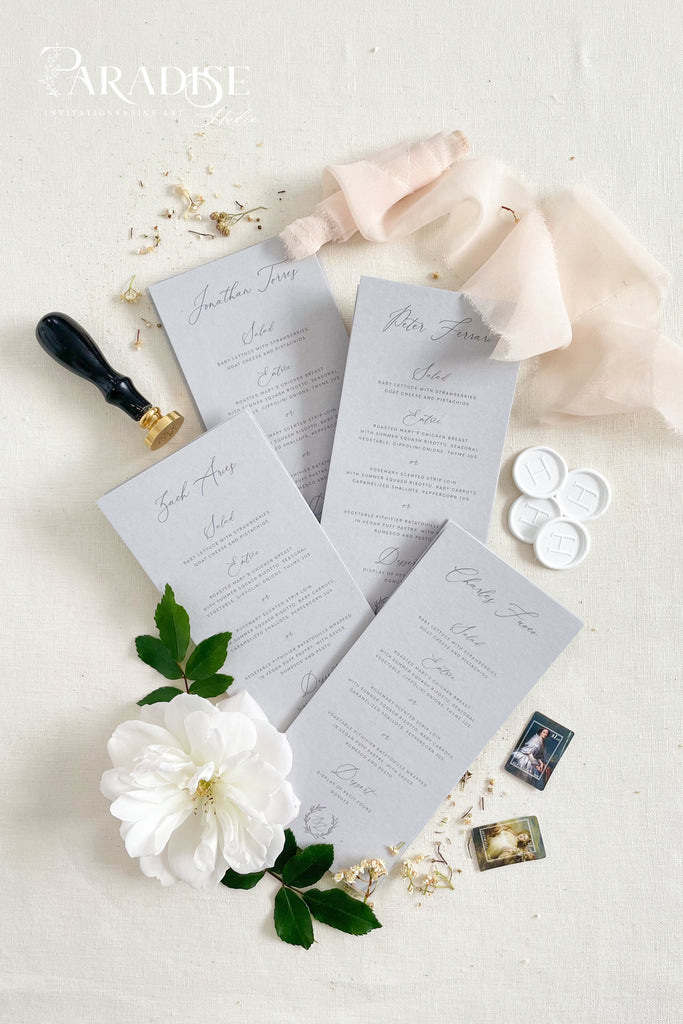 PARADISE
INVITATIONS+FINE ART
Studio
Jonathan Torres
Salad
BABY LETTUCE WITH STRAWBERRIES,
GOAT CHEESE AND PISTACHIOS
Entrée
ROASTED MARY'S CHICKEN BREAST
WITH SUMMER SQUASH RISOTTO, SEASONAL
VEGETABLE, CIPPOLINI ONIONS, THYME JUS
or
ROSEMARY SCENTED STRIP LOIN
Peter Ferrari
Salad
BABY LETTUCE WITH STRAWBERRIES,
GOAT CHEESE AND PISTACHIOS
Entrée
ROASTED MARY'S CHICKEN BREAST
WITH SUMMER SQUASH RISOTTO, SEASONAL
VEGETABLE, CIPPOLINI ONIONS, THYME JUS
or
ROSEMARY SCENTED STRIP LOIN
WITH SUMMER SQUASH RISOTTO, BABY CARROTS,
CARAMELIZED SHALLOTS, PEPPERCORN JUS
or
VEGETABLES PITHIVIER RATATOUILLE WRAPPED
IN VEGAN PUFF PASTRY, WITH SAUCE
ROMESCO AND PESTO
Dessert
DISPLAY OF
Zach Aries
Salad
BABY LETTUCE WITH STRAWBERRIES,
GOAT CHEESE AND PISTACHIOS
Entrée
ROASTED MARY'S CHICKEN BREAST
WITH SUMMER SQUASH RISOTTO, SEASONAL
VEGETABLE, CIPPOLINI ONIONS, THYME JUS
or
ROSEMARY SCENTED STRIP LOIN
WITH SUMMER SQUASH RISOTTO, BABY CARROTS,
CARAMELIZED SHALLOTS, PEPPERCORN JUS
or
VEGETABLES PITHIVIER RATATOUILLE WRAPPED
IN VEGAN PUFF PASTRY, WITH SAUCE
ROMESCO AND PESTO
Charles Fucco
Salad
BABY LETTUCE WITH STRAWBERRIES,
GOAT CHEESE AND PISTACHIOS
Entrée
ROASTED MARY'S CHICKEN BREAST
WITH SUMMER SQUASH RISOTTO, SEASONAL
VEGETABLE, CIPPOLINI ONIONS, THYME JUS
or
ROSEMARY SCENTED STRIP LOIN
WITH SUMMER SQUASH RISOTTO, BABY CARROTS
CARAMELIZED SHALLOTS, PEPPERCORN JUS
or
VEGETABLES PITHIVIER RATATOUILLE WRAPPED
IN VEGAN PUFF PASTRY, WITH SAUCE
ROMESCO AND PESTO
Dessert
DISPLAY OF PETIT FOURS
DONUTS
H
H
H
H